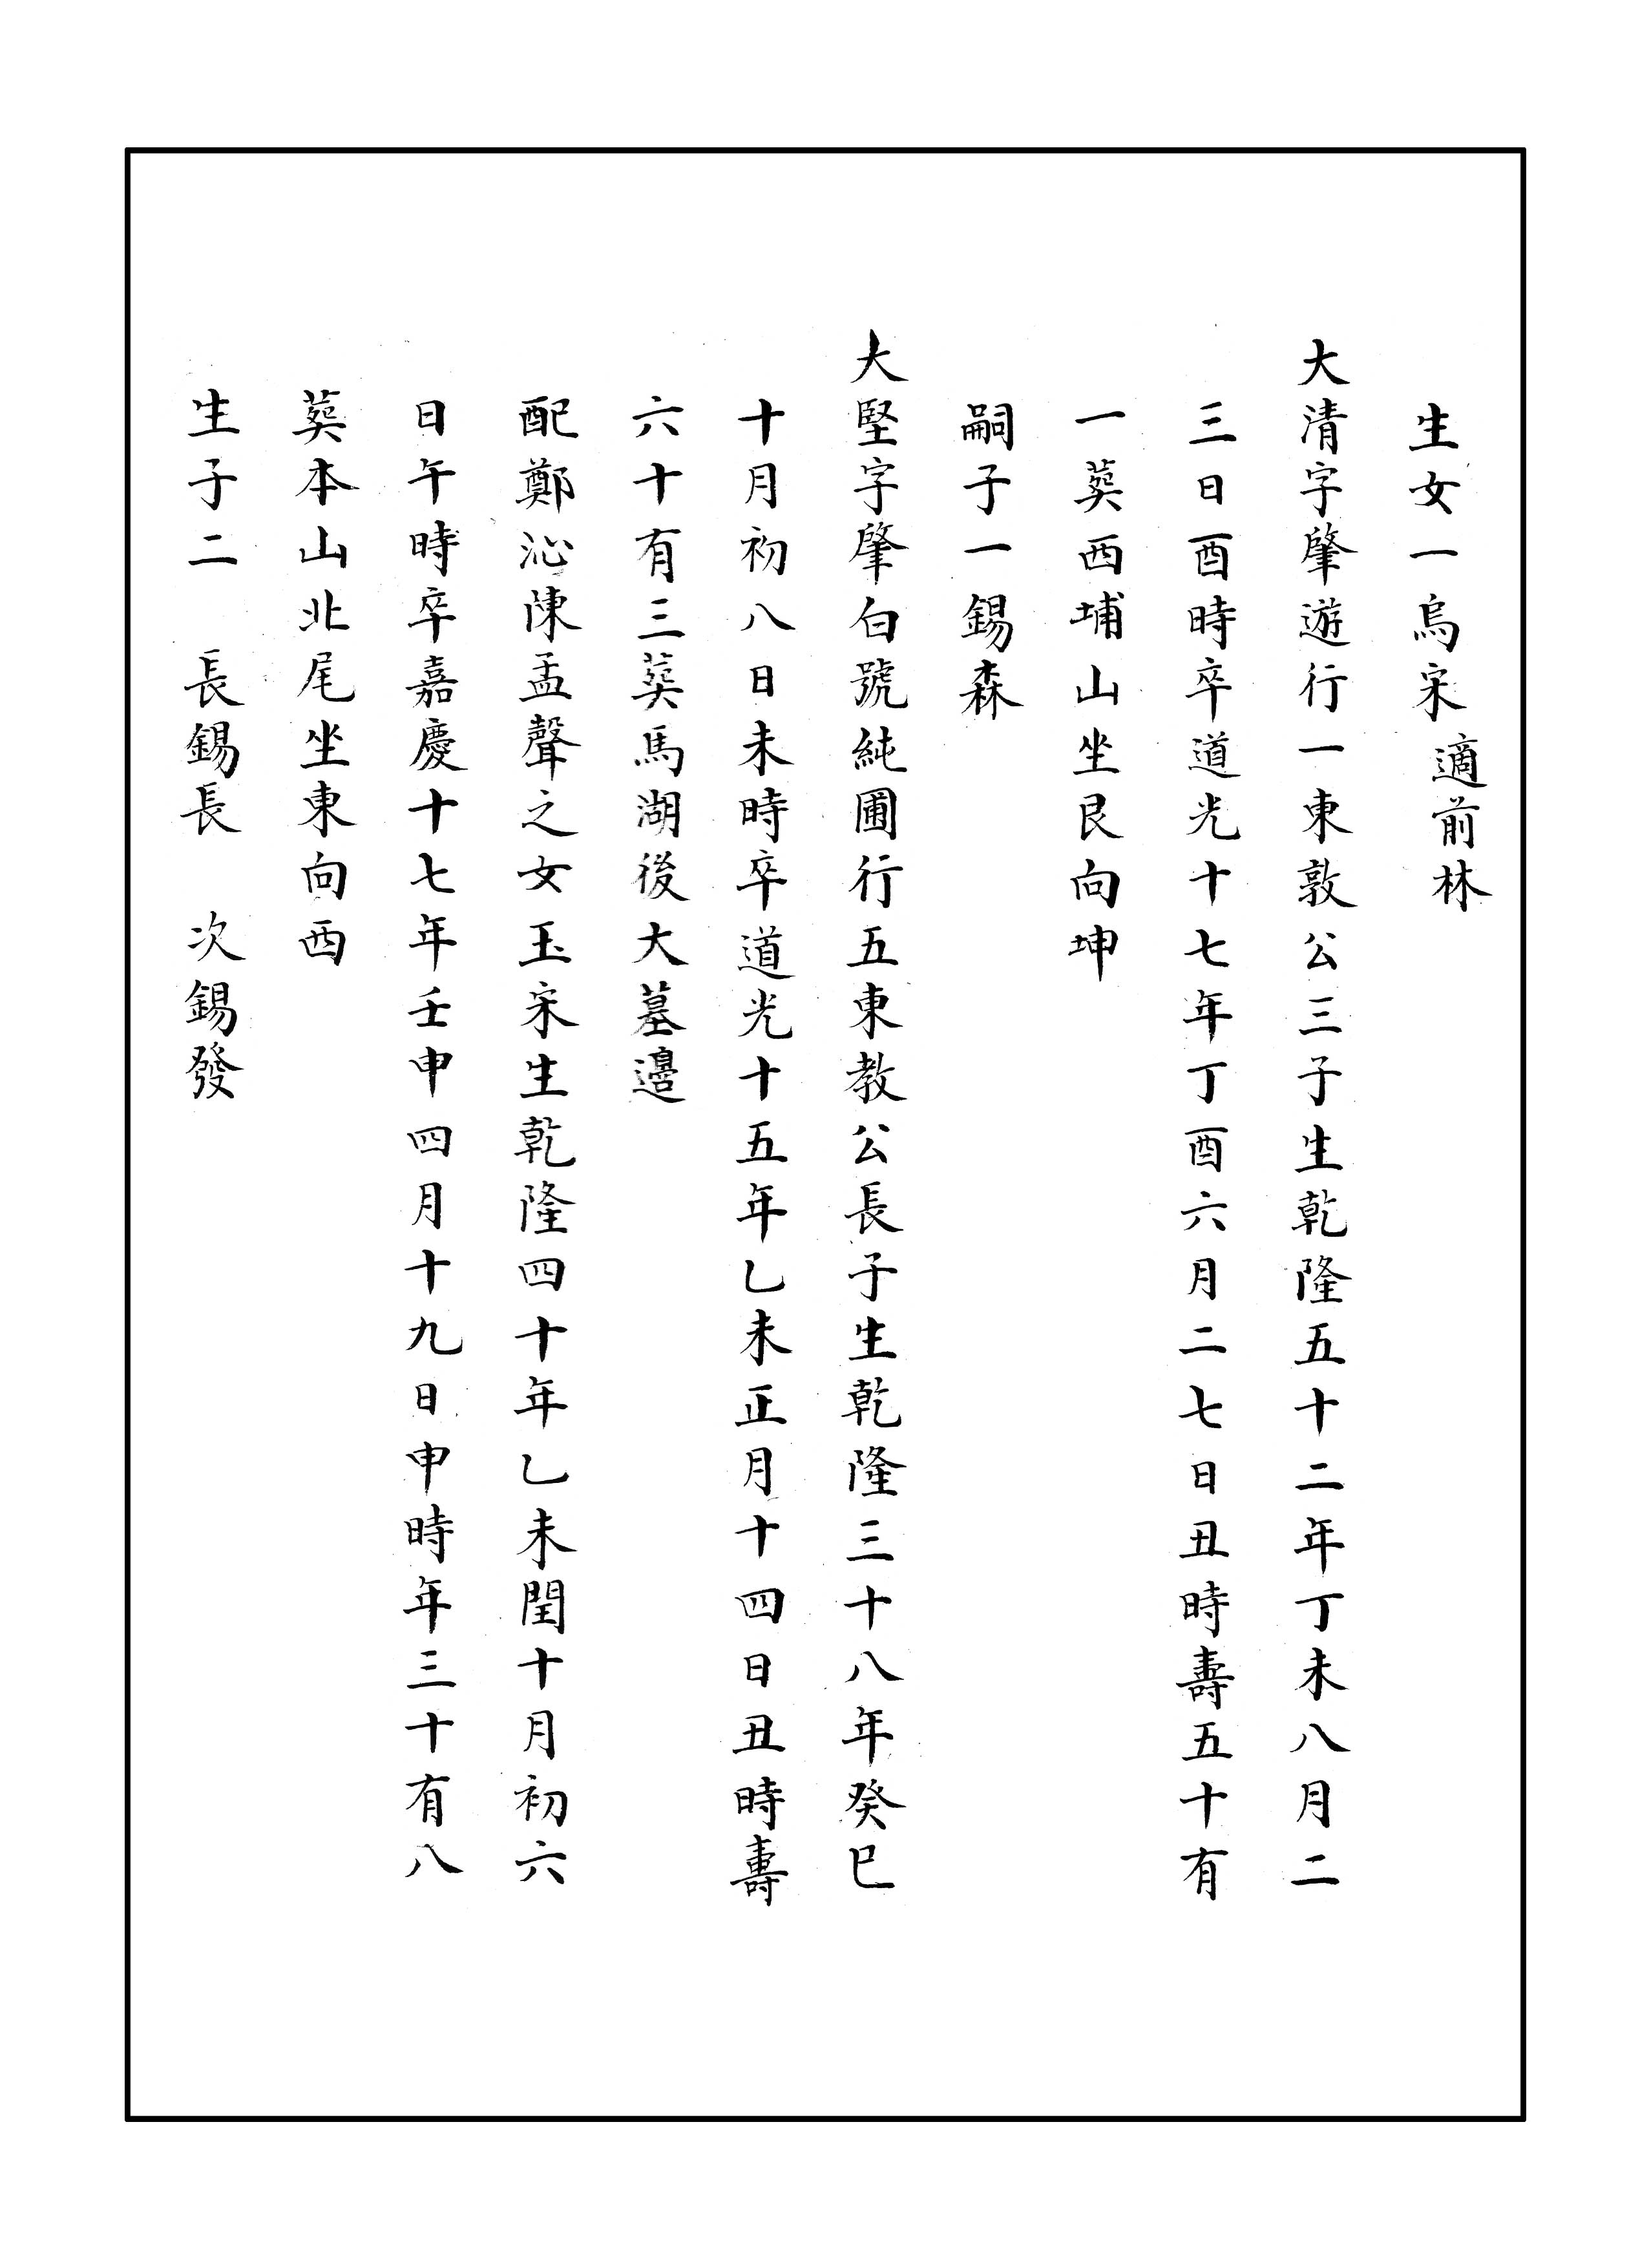 生女一烏宋適前林
大清字肇遊行一東敦公三子生乾隆五十二年丁未八月二
三日酉時卒道光十七年丁酉六月二七日丑時壽五十有
一葬西埔山坐艮向坤
嗣子一錫森
大堅字肇白號純圃行五東教公長子生乾隆三十八年癸巳
十月初八日未時卒道光十五年乙未正月十四日丑時壽
六十有三葬馬湖後大墓邊
配鄭沁陳孟聲之女玉宋生乾隆四十年乙未閏十月初六
日午時卒嘉慶十七年壬申四月十九日申時年三十有八
葬本山北尾坐東向西
生子二　長錫長　次錫發